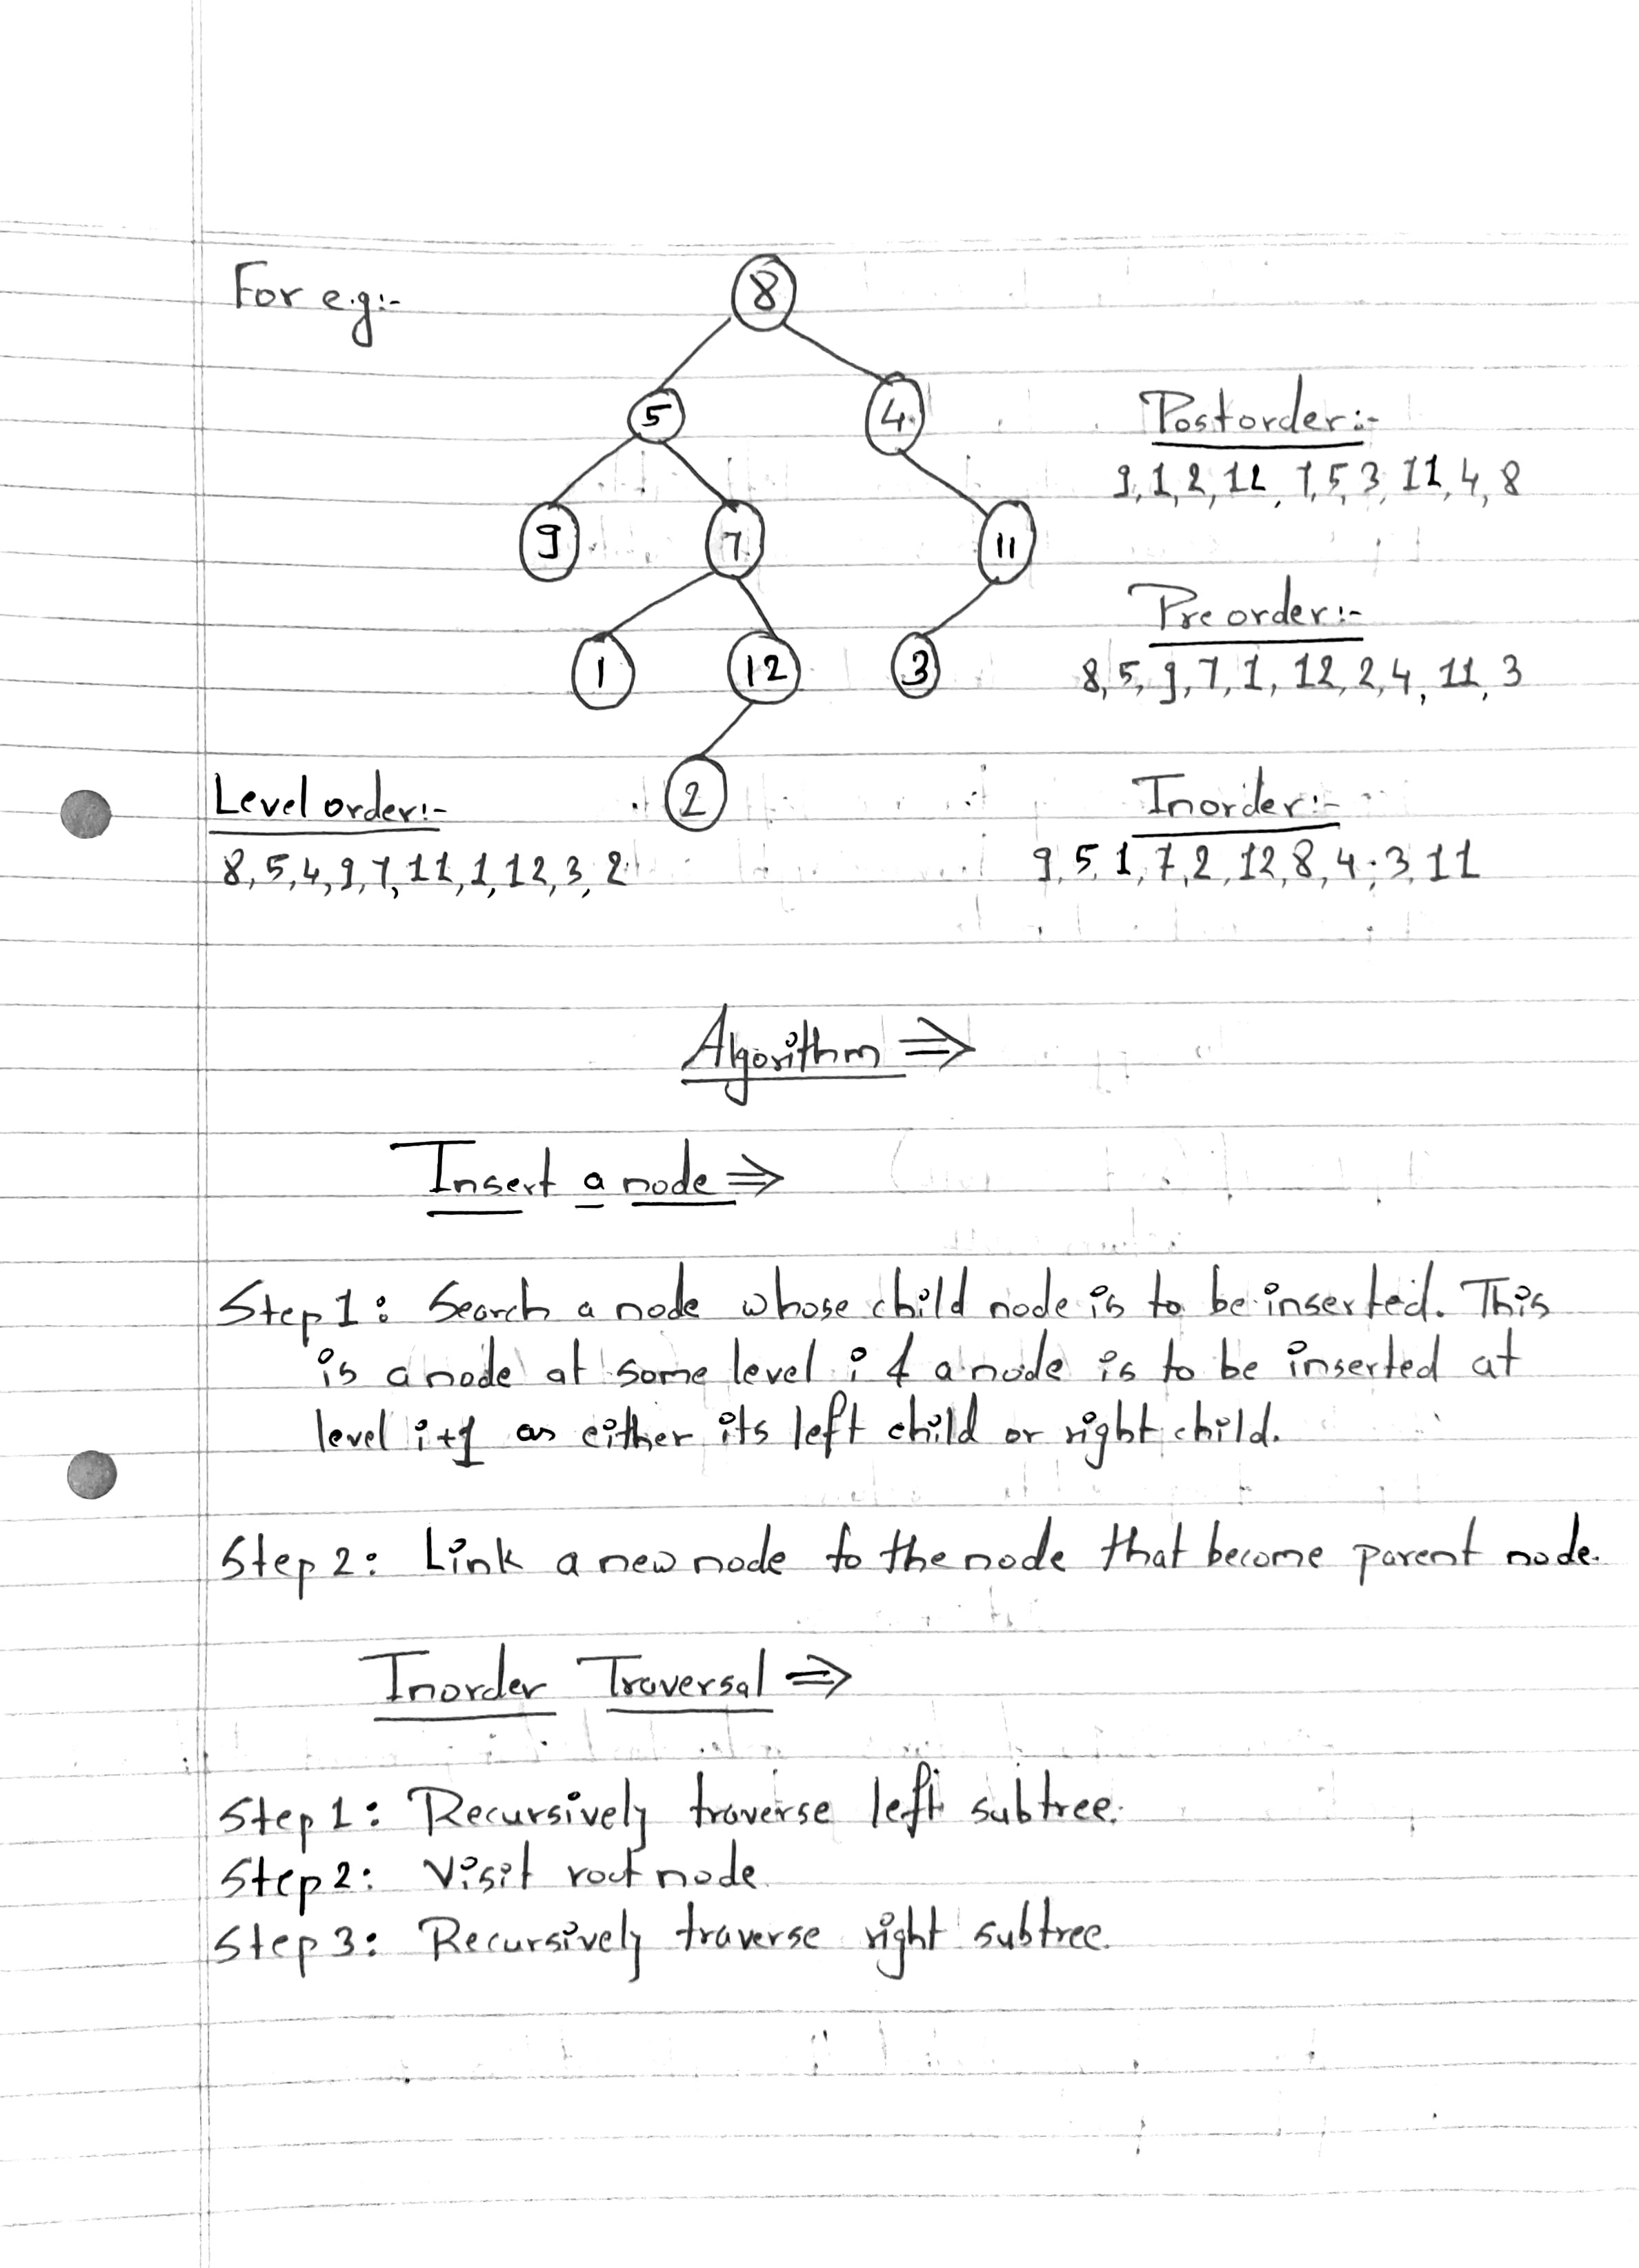 For e.g:-
8
5 4
9 7 11
1 12 3
2
Postorder:-
9,1,2,12,7,5,3,11,4,8
Preorder:-
8,5,9,7,1,12,2,4,11,3
Level order:-
8,5,4,9,7,11,1,12,3,2
Inorder:-
9,5,1,7,2,12,8,4,3,11
Algorithm ⇒
Insert a node ⇒
Step 1: Search a node whose child node is to be inserted. This
is a node at some level i & a node is to be inserted at
level i+1 as either its left child or right child.
Step 2: Link a new node to the node that become parent node.
Inorder Traversal ⇒
Step 1: Recursively traverse left subtree.
Step 2: Visit root node.
Step 3: Recursively traverse right subtree.